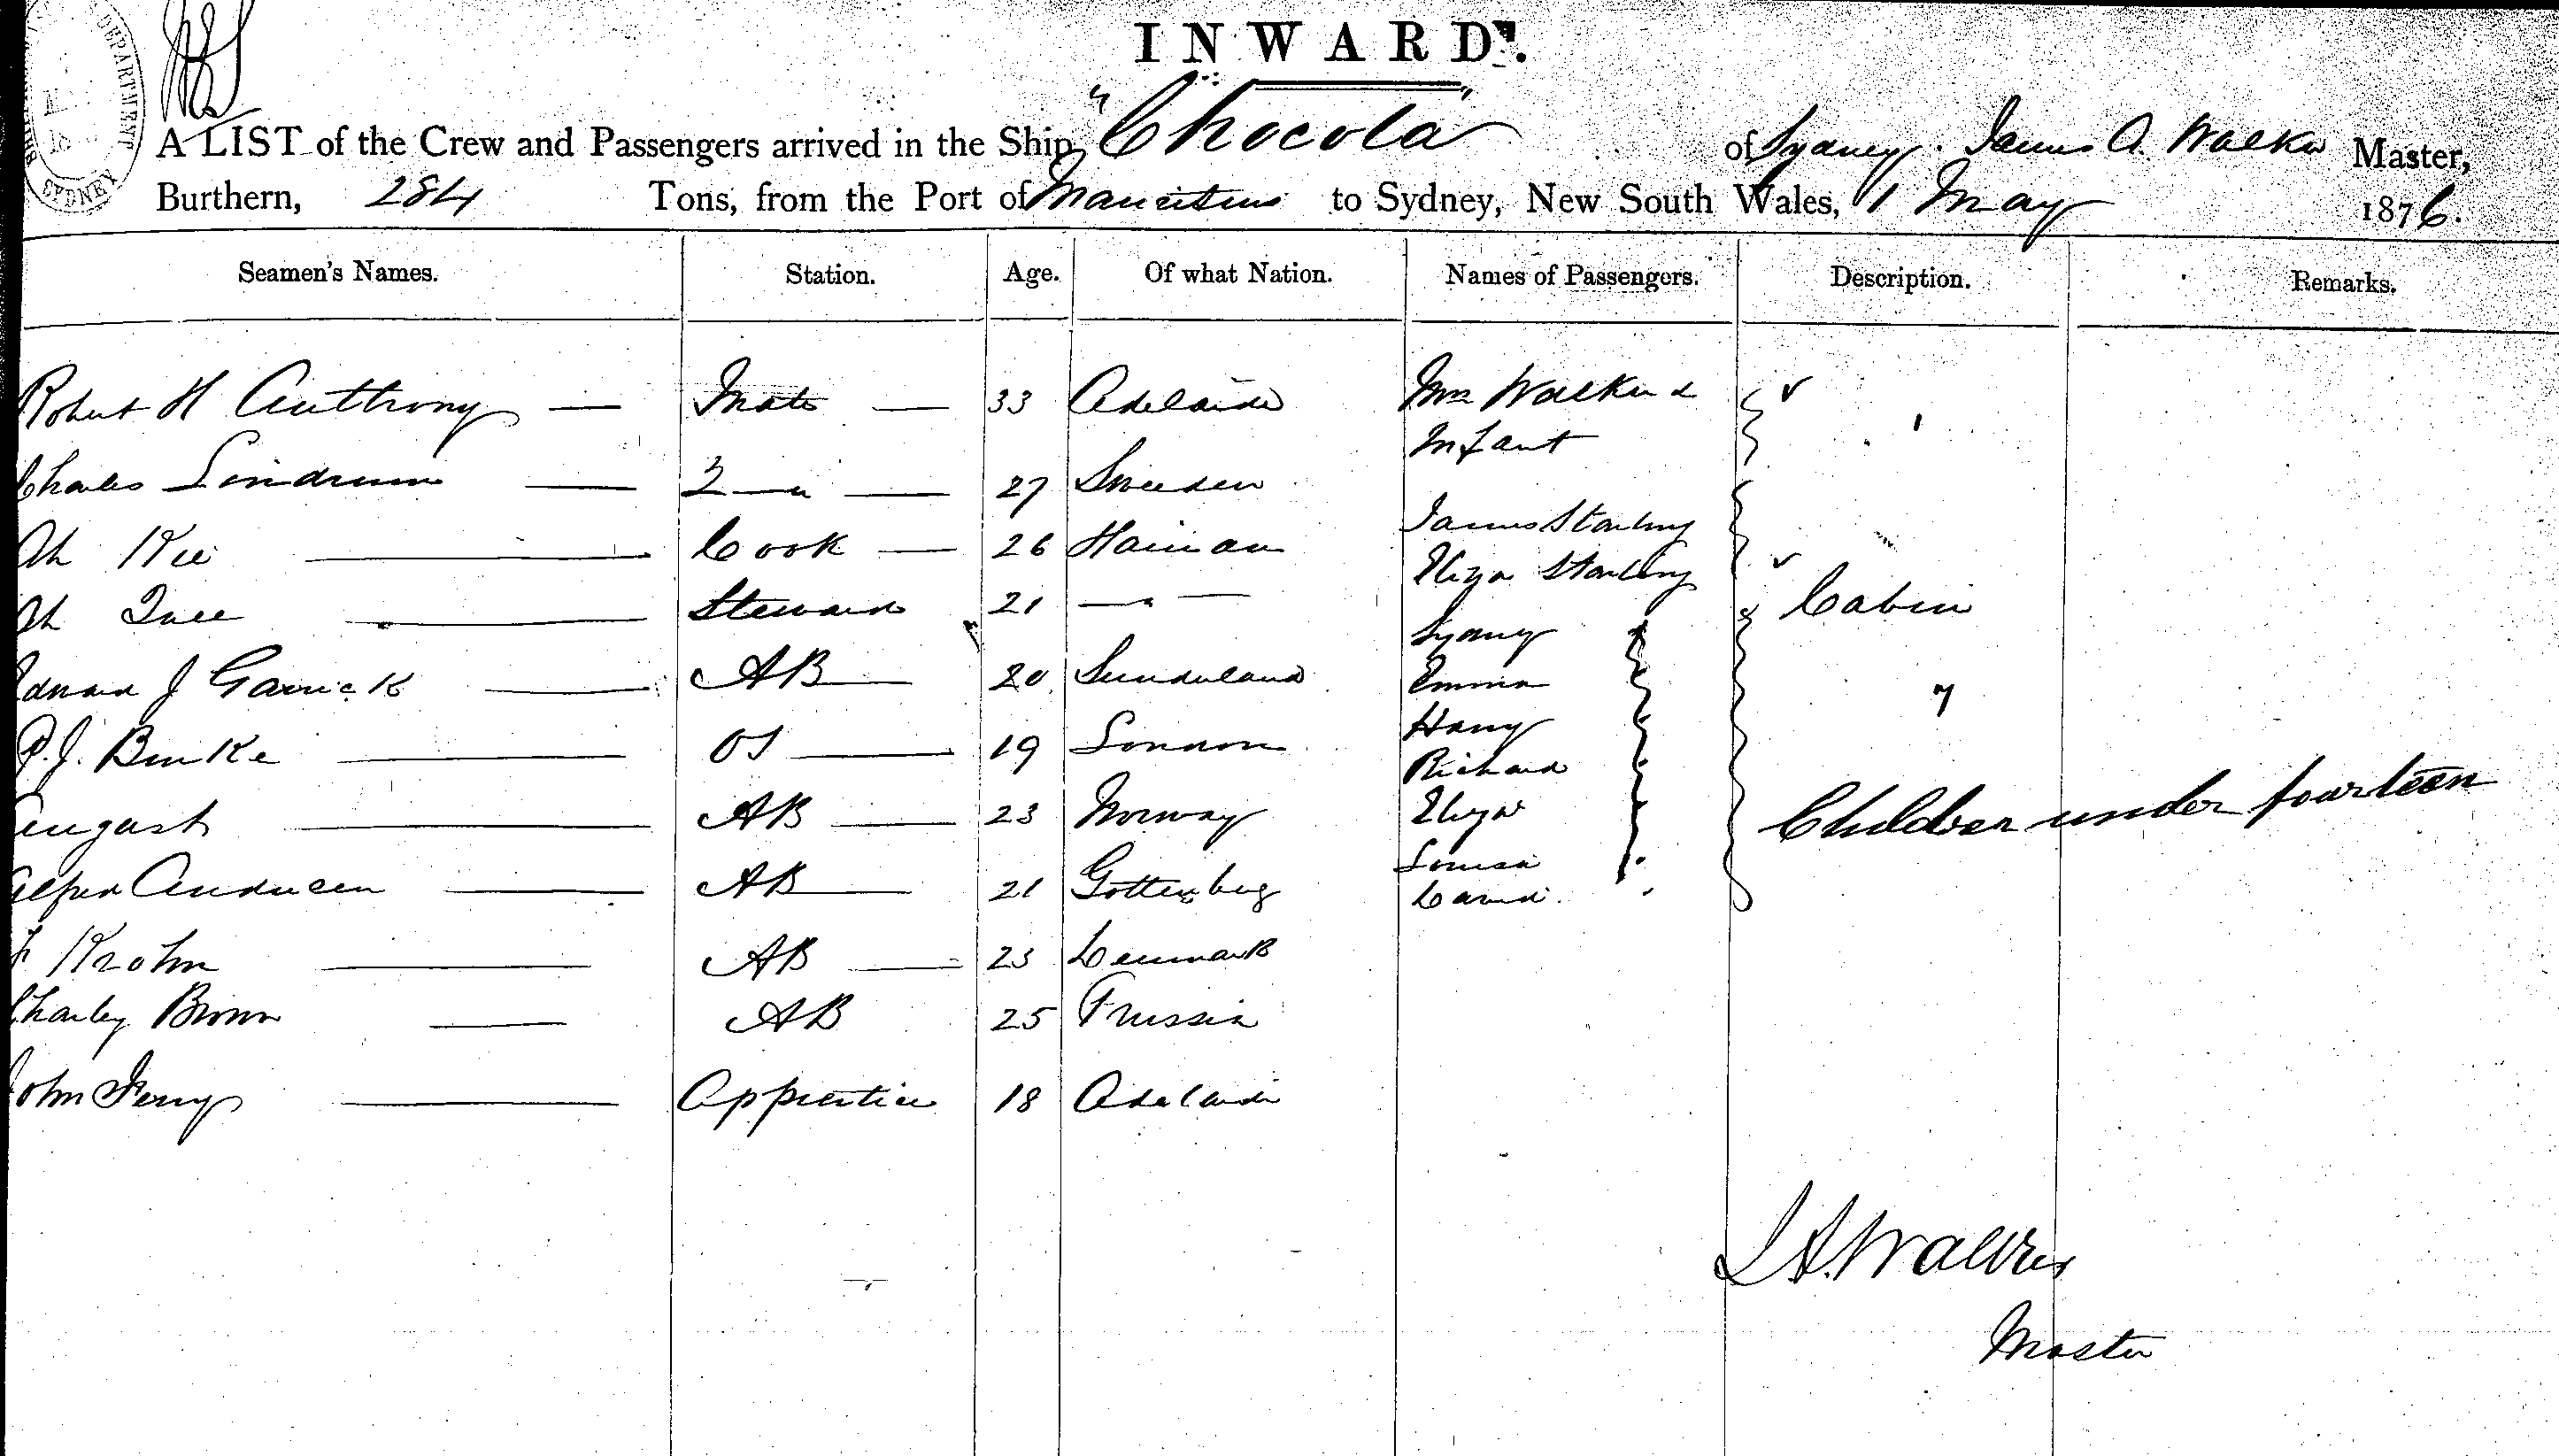 DEPARTMENT
SYDNEY
INWARD.
A LIST of the Crew and Passengers arrived in the Ship "Chocola" of Sydney James A. Walker Master,
Burthern, 284 Tons, from the Port of Mauritius to Sydney, New South Wales, 1 May 1876.
Seamen's Names. Station. Age. Of what Nation. Names of Passengers. Description. Remarks.
Robert H Anthony — Mate — 33 Adelaide Mrs Walker &
Infant
Charles Lindrum — 2 — " — 27 Sweden
James Starling
Ah Kee — Cook — 26 Hainan
Eliza Starling
Ah — Steward 21 — " — Cabin
Sydney
Edward J Garrick — AB — 20 Sunderland Emma 7
Harry
P. J. Burke — OS — 19 London
Richard
August — AB — 23 Norway Eliza Children under fourteen
Louisa
Alfred Andersen — AB — 21 Gottenburg
David
Krohn — AB — 23 Denmark
Charley Brown — AB 25 Prussia
John Ferry — Apprentice 18 Adelaide
J A. Walker
Master